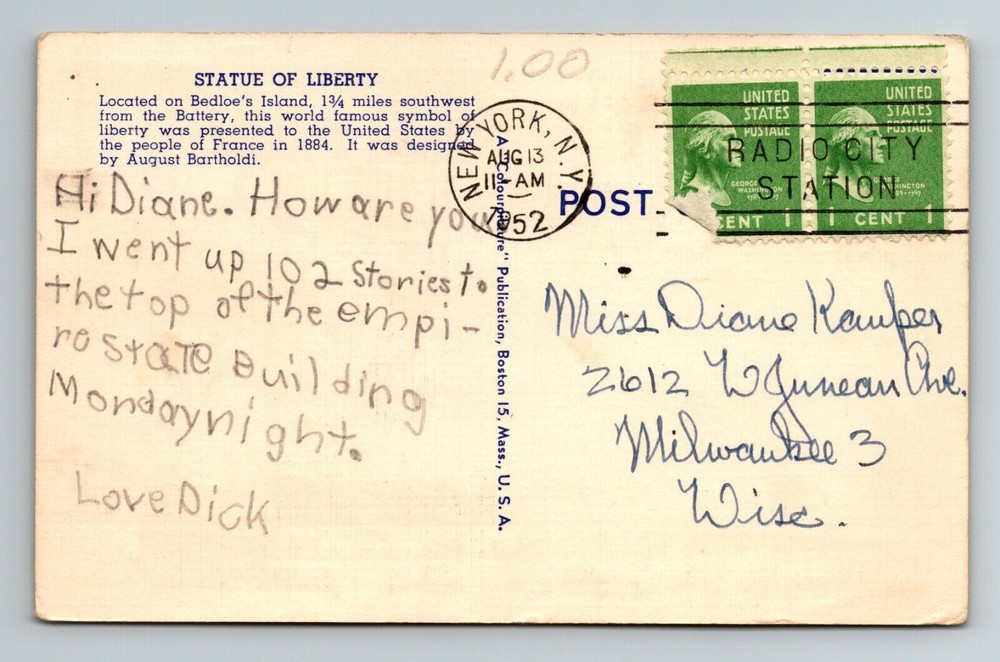 STATUE OF LIBERTY
Located on Bedloe's Island, 1¾ miles southwest
from the Battery, this world famous symbol of
liberty was presented to the United States by
the people of France in 1884. It was designed
by August Bartholdi.
Hi Diane. How are you
I went up 102 Stories to
the top of the empi-
re STATE Building
Monday night.
Love Dick
A "Colourpicture" Publication, Boston 15, Mass., U. S. A.
1.00
NEW YORK, N.Y.
AUG 13
11-AM
1952
POST C
UNITED
STATES
POSTAGE
GEORGE
WASHINGTON
CENT 1
UNITED
STATES
POSTAGE
WASHINGTON
1789-1797
1 CENT 1
RADIO CITY
STATION
Miss Diane Kamper
2612 W Juneau Ave.
Milwaukee 3
Wisc.